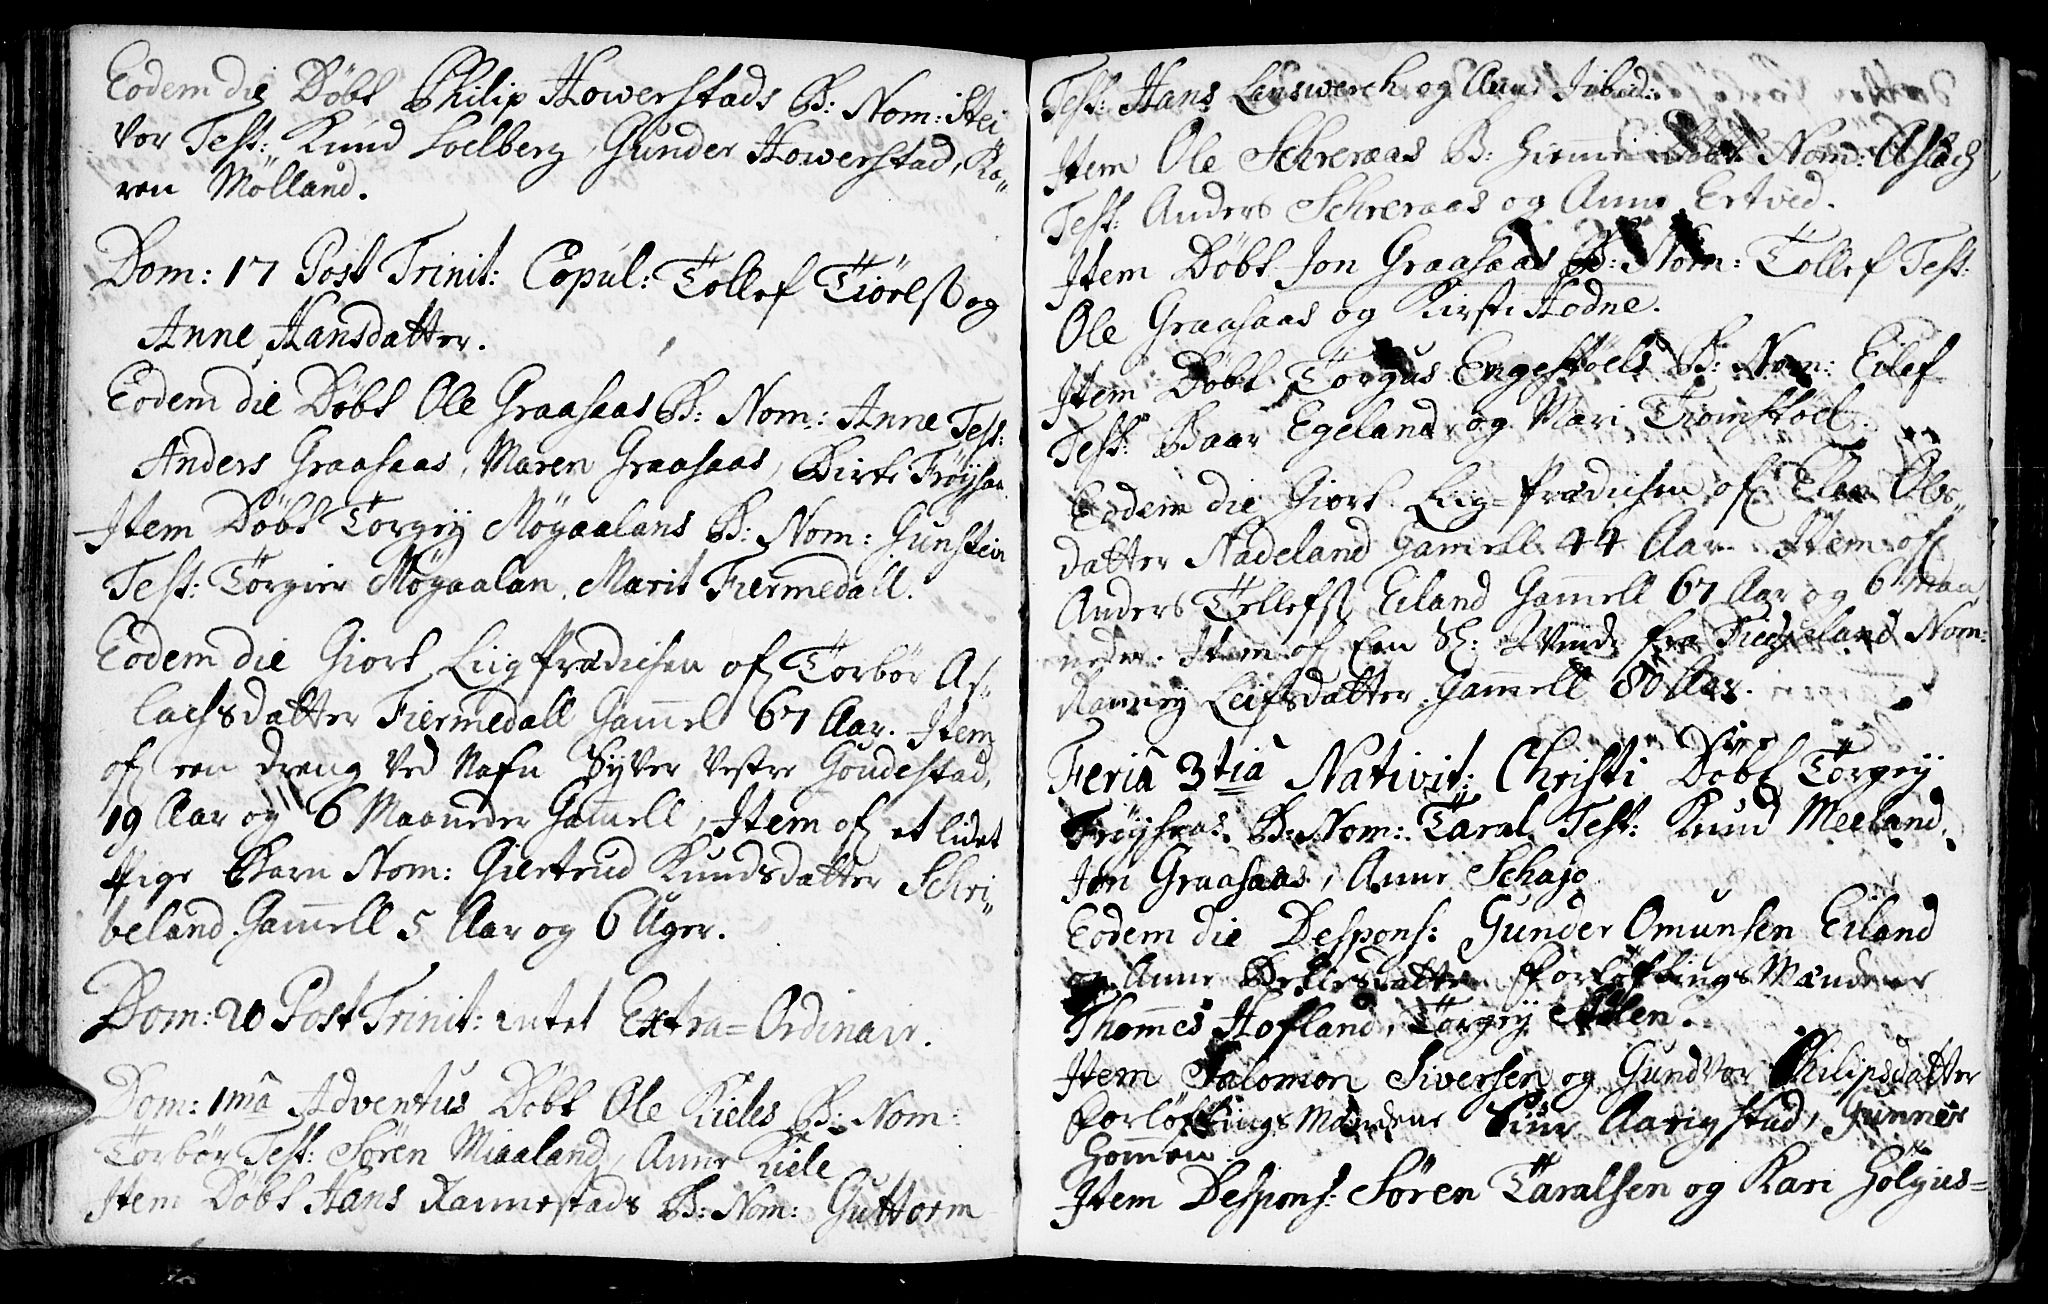 Eodem die Döbt Philip Howerstads B: Nom: Stei
vor Test: Knud Loelberg, Gunder Howerstad, Ka„
ren Mölland.
Dom: 17 Post Trinit: Copul: Tollef Tiörelß og
Anne Hansdatter.
Eodem die Döbt Ole Graasaas B: Nom: Anne Test:
Anders Graasaas, Maren Graasaas, Birte Fröysaa
Item Döbt Torgey Mögaalans B: Nom: Gunstein
Test: Torgier Mögaalan, Marit Fiermedall.
Eodem die Giort Liig Prædichen of Torbör As„
lachsdatter Fiermedall Gam̄el 67 Aar. Item
of een dreng ved Nafn Syver Vestre Goudestad,
19 Aar og 6 Maaneder Gam̄ell, Item of et lidet
Pige Barn Nom: Giertrud Knudsdatter Schri„
beland Gam̄ell 5 Aar og 6 Uger.
Dom: 20 Post Trinit: intet Extra=Ordinair.
Dom: 1mâ Adventus Döbt Ole Kieles B: Nom:
Torbör Test: Sören Miaaland, Anne Kiele
Item Döbt Hans Rannestads B: Nom: Guttorm
Test: Hans og Anne
Item Ole Schreraas B: hiem̄e Döbt Nom: Aslach
Test: Anders Schreraas og Anne Ertved.
Item Döbt Jon Graasaas B: Nom: Tollef Test:
Ole Graasaas og Kirsti Hodne.
Item Döbt Torgus Engestöels B: Nom: Eilef
Test: Baar Egeland og Mari Tromstöel.
Eodem die Giort Lig=Prædichen of Ols„
datter Nadeland Gam̄ell 44 Aar. Item of
Anders Tellefß Eiland Gam̄ell 67 Aar og 6 Maa
neder. Item of Een fra Nom:
Ranney Leifsdatter, Gam̄ell 80 Aar.
Feriâ 3tiâ Nativit: Christi Döbt Torgey
Fröysaas B: Nom: Taral Test: Knud Meeland,
Jon Graasaas, Anne Schaje
Eodem die Despons: Gunder Omunsen Eiland
og Anne Forlöftings Mændene
Thom̄es Hofland, Torgey
Item Salomon Siversen og Gundvor Philipsdatter
Forlöftings Mændene Siur Aarigstad, Gunner
Hom̄en.
Item Despons: Sören Taralsen og Kari Holgies=